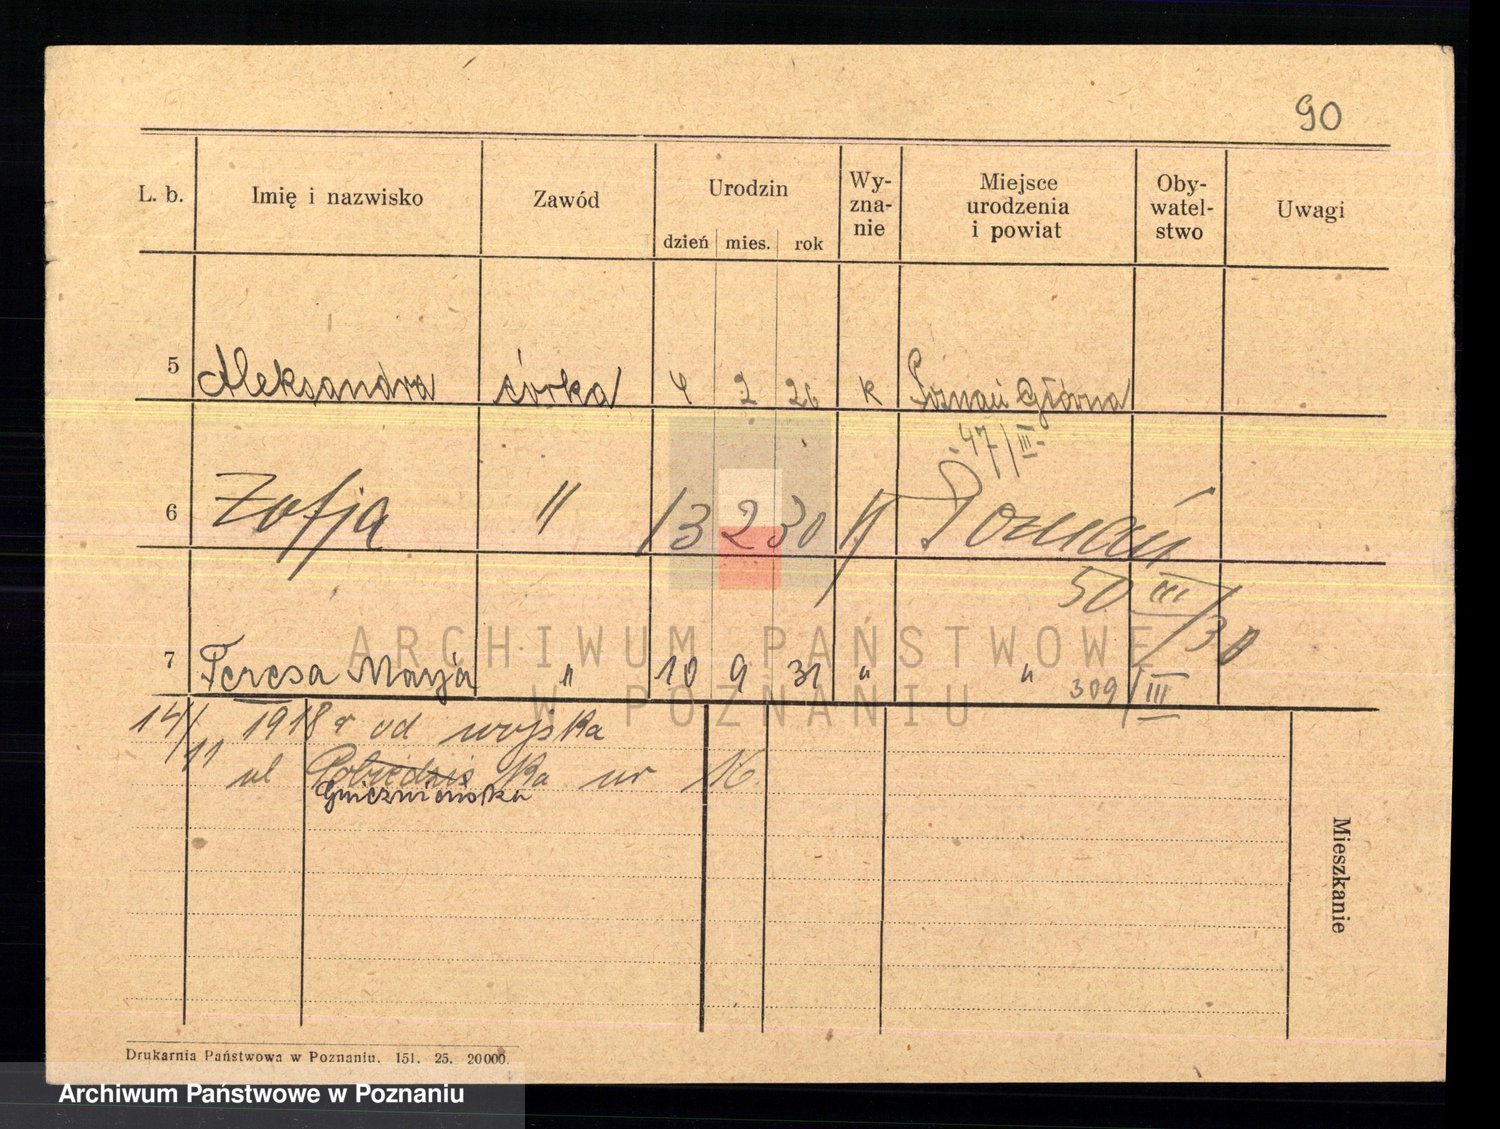 90
L. b. Imię i nazwisko Zawód Urodzin Wy-zna-nie Miejsce urodzenia i powiat Oby-watel-stwo Uwagi
dzień mies. rok
5 Aleksandra córka 4 2 26 k Poznań Główna
47/III.
6 Zofja " 13 2 30 " Poznań
50 III/30
7 Teresa Marja " 10 9 31 " "
309/III
14/11 1918 r od wojska
ul Pobiedziska nr 16.
Gnieźnieńska
Mieszkanie
Drukarnia Państwowa w Poznaniu. 151. 25. 20000.
ARCHIWUM PAŃSTWOWE
W POZNANIU
Archiwum Państwowe w Poznaniu